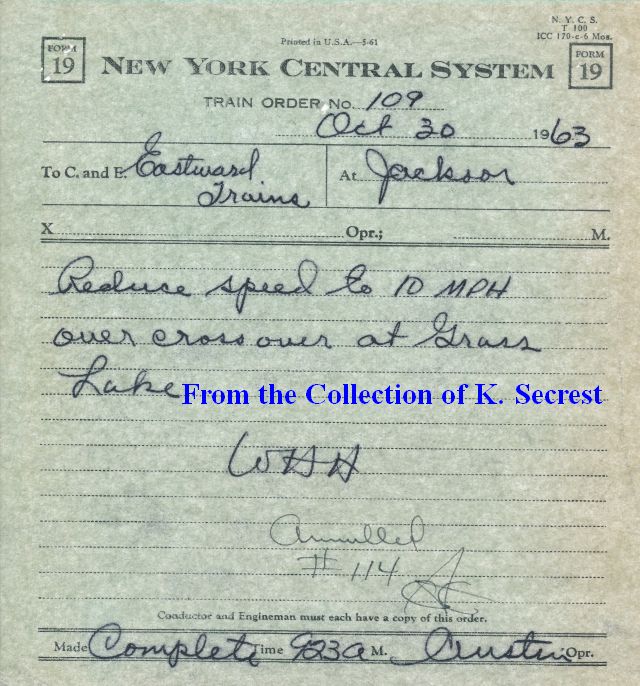 N. Y. C. S.
T 100
ICC 170-c-6 Mos.
Printed in U.S.A.—5-61
FORM 19
NEW YORK CENTRAL SYSTEM
FORM 19
TRAIN ORDER No. 109
Oct 30 1963
To C. and E. Eastward Trains At Jackson
X Opr.; M.
Reduce speed to 10 MPH
over crossover at Grass
Lake
From the Collection of K. Secrest
WHH
Annulled
# 114
Conductor and Engineman must each have a copy of this order.
Made Complete Time 923a M. Austin Opr.